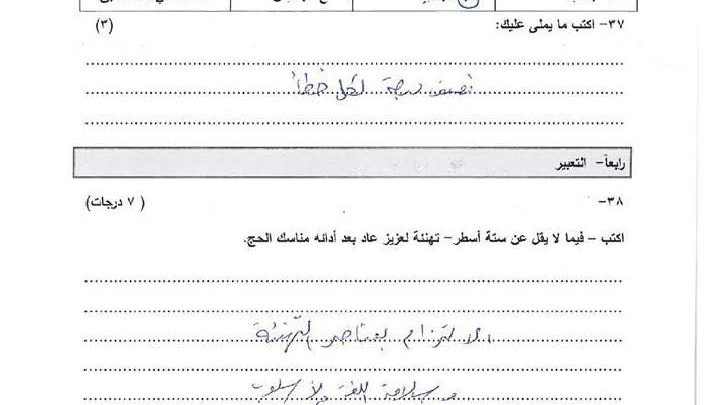 ٣٧- اكتب ما يملى عليك: (٣)
نصف درجة لكل خطأ
رابعاً- التعبير
٣٨- ( ٧ درجات)
اكتب – فيما لا يقل عن ستة أسطر – تهنئة لعزيز عاد بعد أدائه مناسك الحج.
الالتزام بعناصر التهنئة
وسلامة اللغة والأسلوب